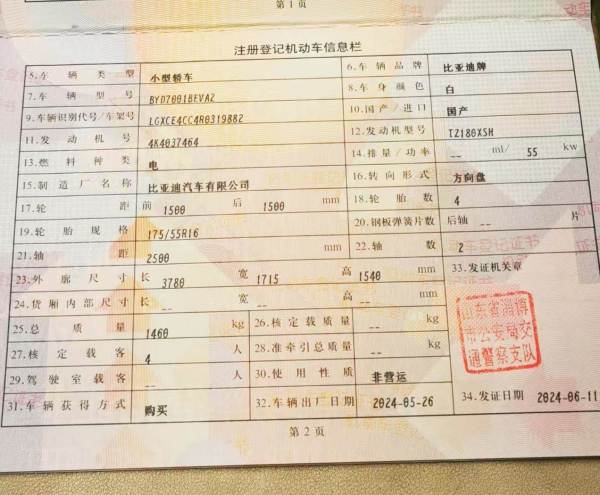 第1页
注册登记机动车信息栏
5.车辆类型 小型轿车 6.车辆品牌 比亚迪牌
7.车辆型号 BYD7001BEVA2 8.车身颜色 白
9.车辆识别代号/车架号 LGXCE4CC4R0319882 10.国产/进口 国产
11.发动机号 4K4037464 12.发动机型号 TZ180XSH
13.燃料种类 电 14.排量/功率 -- ml/ 55 kw
15.制造厂名称 比亚迪汽车有限公司 16.转向形式 方向盘
17.轮距 前 1500 后 1500 mm 18.轮胎数 4
19.轮胎规格 175/55R16 20.钢板弹簧片数 后轴 -- 片
21.轴距 2500 mm 22.轴数 2
23.外廓尺寸 长 3780 宽 1715 高 1540 mm 33.发证机关章
24.货厢内部尺寸 长 -- 宽 -- 高 -- mm
25.总质量 1460 kg 26.核定载质量 -- kg
27.核定载客 4 人 28.准牵引总质量 -- kg
29.驾驶室载客 -- 人 30.使用性质 非营运
山东省淄博
市公安局交
通警察支队
31.车辆获得方式 购买 32.车辆出厂日期 2024-05-26 34.发证日期 2024-06-11
第2页